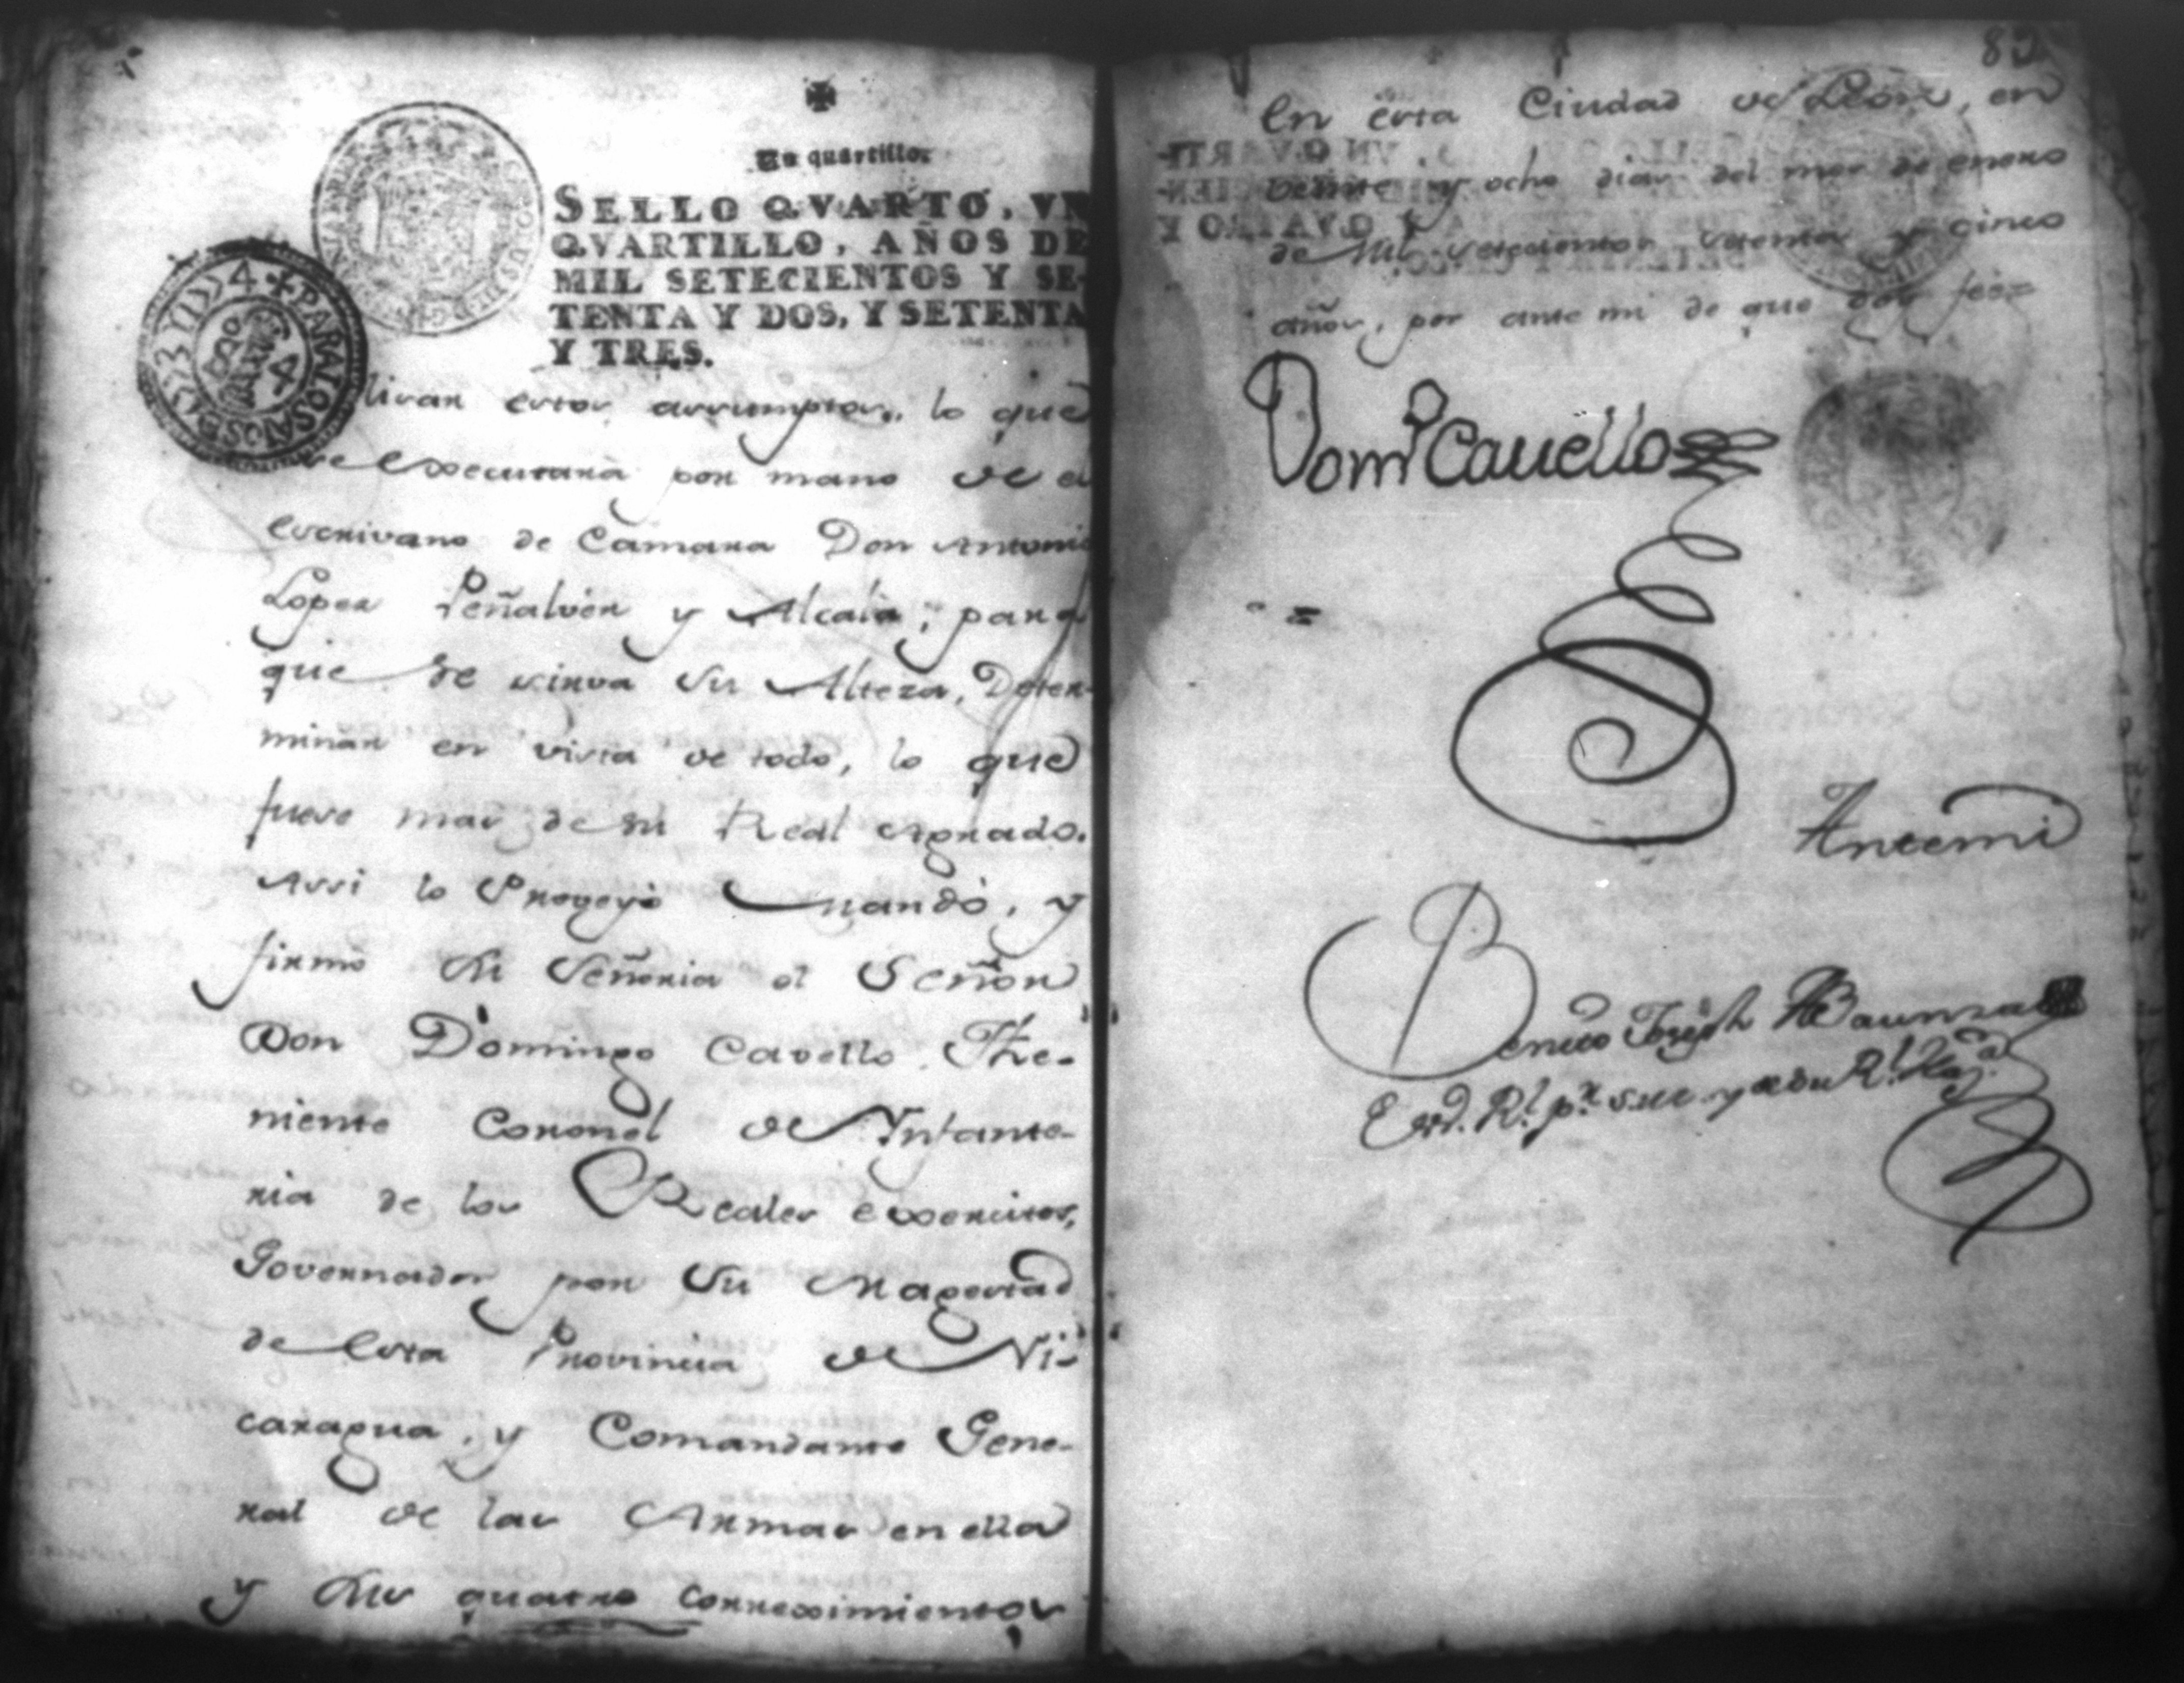 Un quartillo.
SELLO QVARTO, VN
QVARTILLO, AÑOS DE
MIL SETECIENTOS Y SE-
TENTA Y DOS, Y SETENTA
Y TRES.
PARALOSAÑOSDE
1773 Y 1774
lizan estos assumptos, lo que
se executará por mano de el
escrivano de Camara Don Antonio
Lopez Peñalver y Alcala; para
que se sirva su Alteza, Deter-
minar en vista de todo, lo que
fuese mas de su Real agrado.
Assi lo Proveyó mandó, y
firmó su Señoria el Señor
Don Domingo Cavello The-
niente Coronel de Ynfante-
ria de los Reales exercitos,
Governador por su Magestad
de esta Provincia de Ni-
caragua, y Comandante Gene-
ral de las Armas en ella
y sus quatro corregimientos
82
en esta Ciudad de León, en
veinte y ocho dias del mes de enero
de mil setecientos setenta y cinco
años, por ante mi de que doy fee=
Domo Cauello
Antemi
Benito Joseph